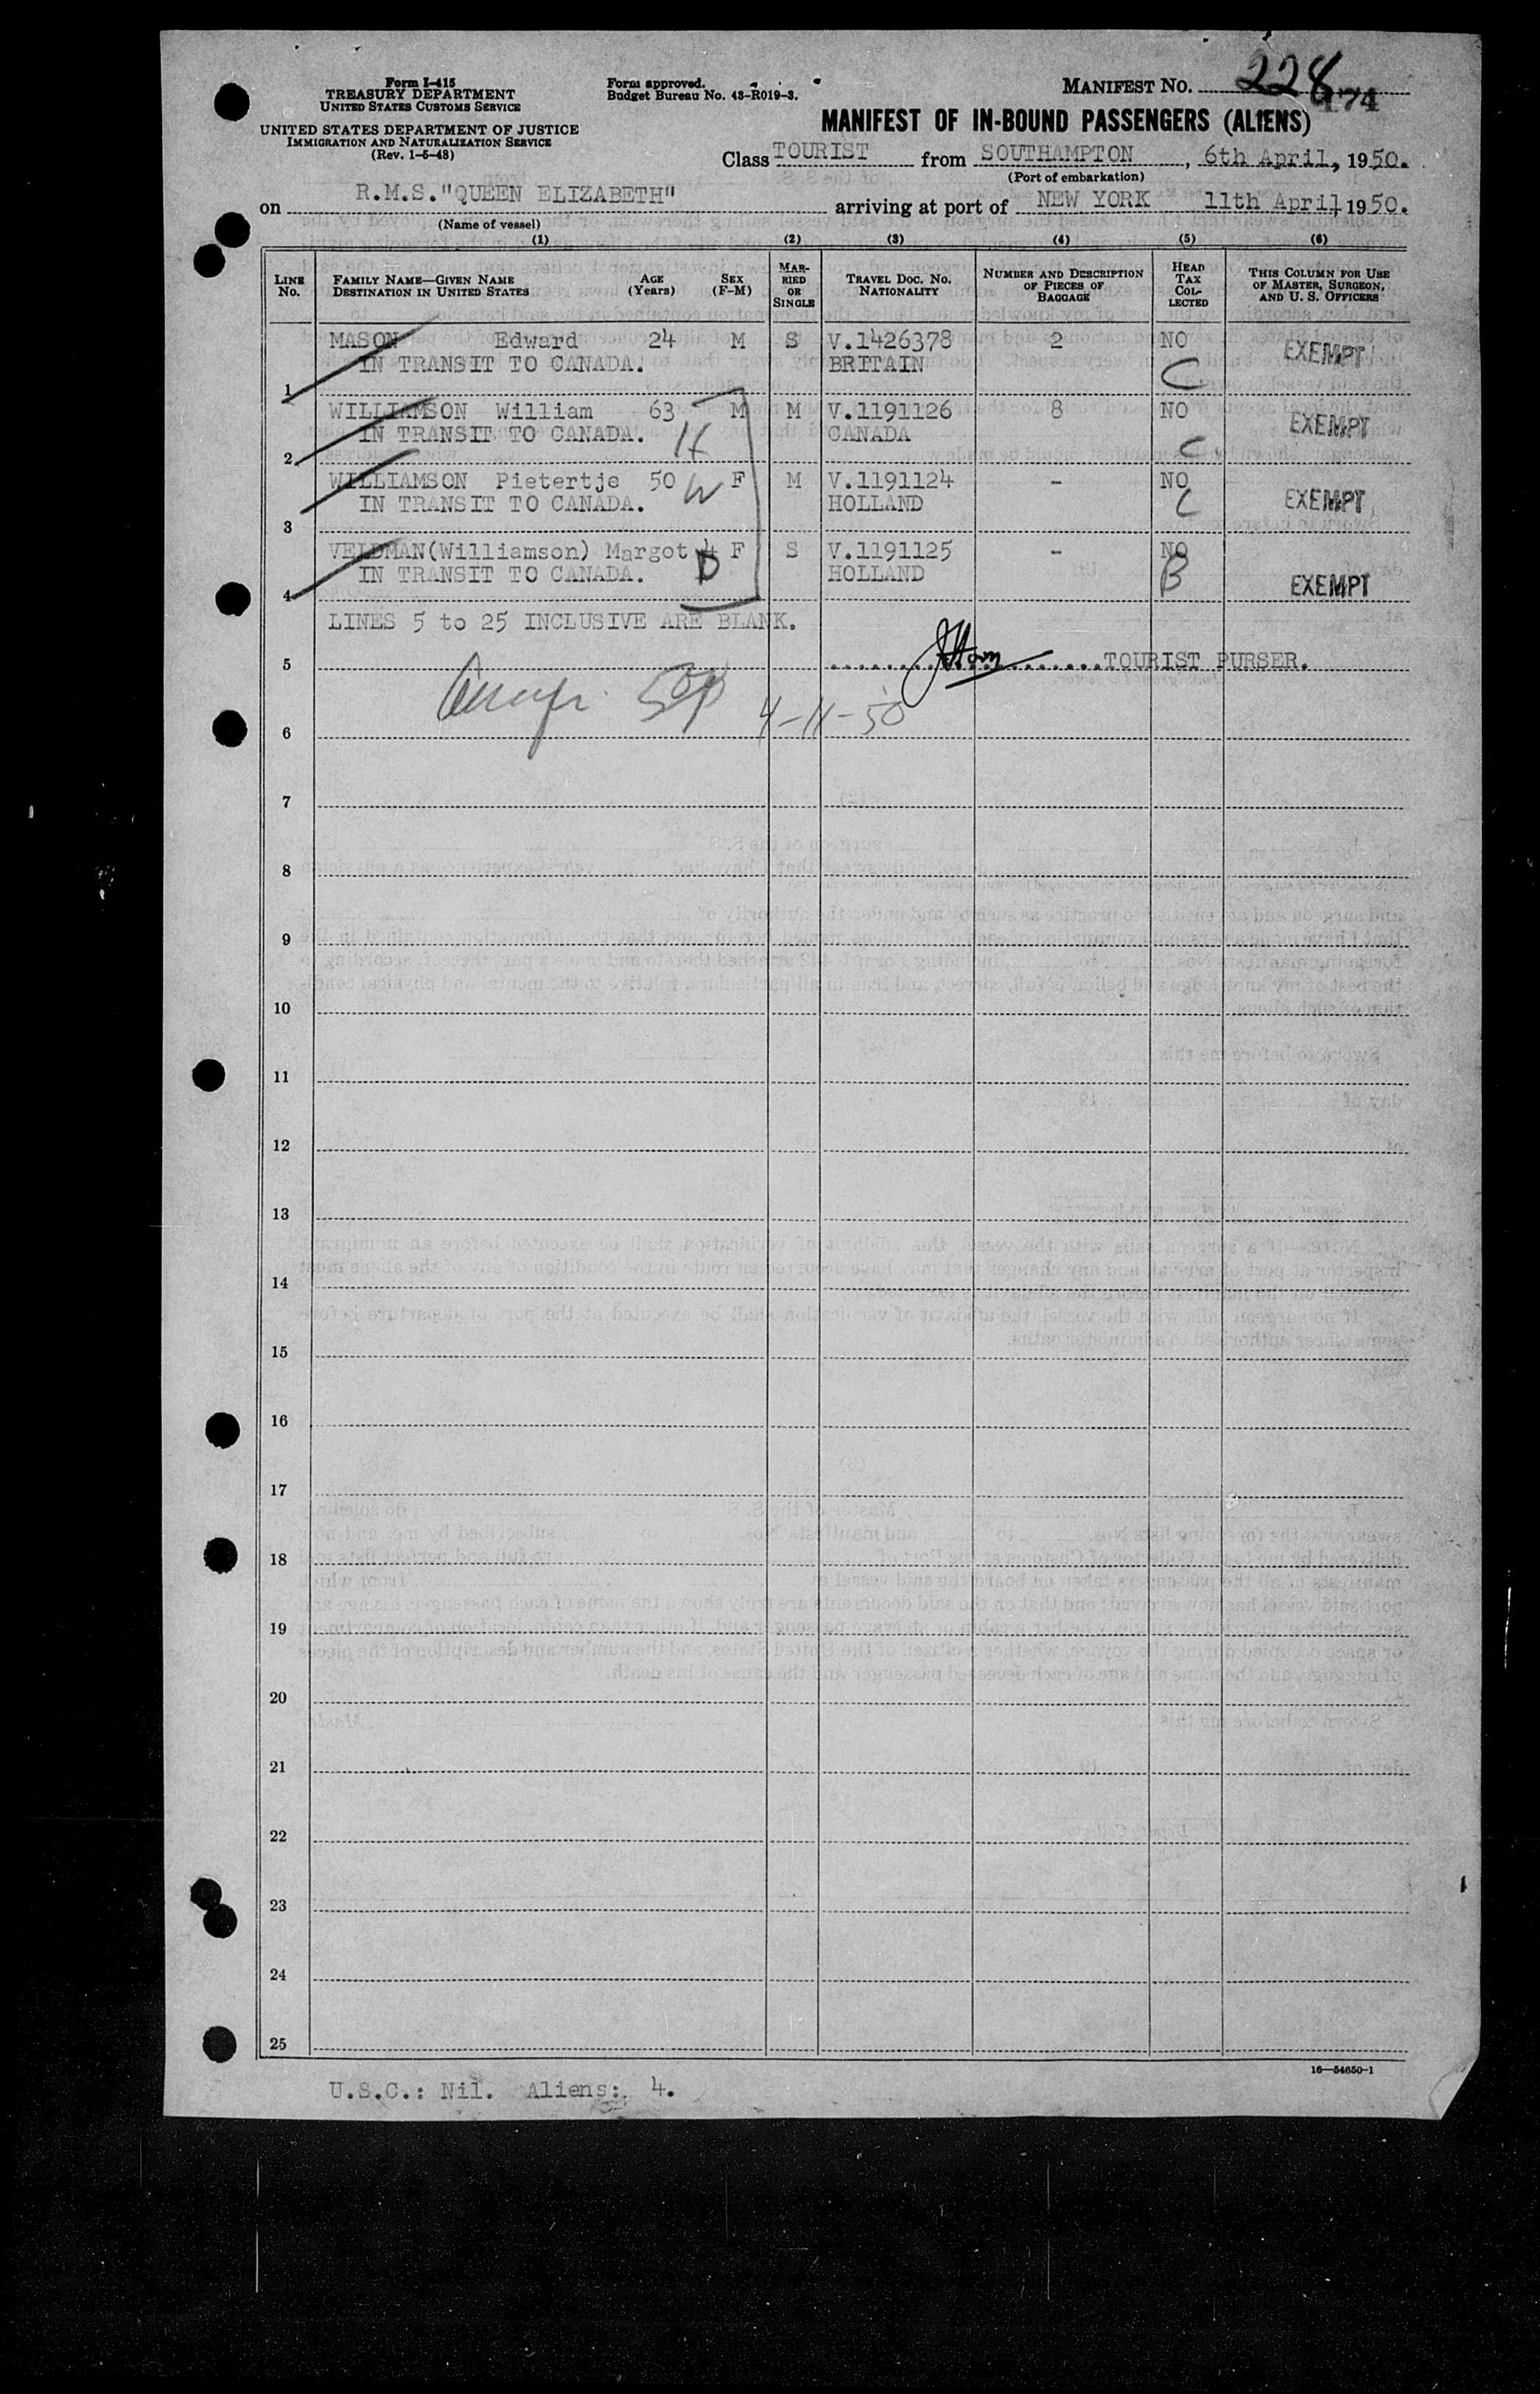 Form I-415
TREASURY DEPARTMENT
UNITED STATES CUSTOMS SERVICE
UNITED STATES DEPARTMENT OF JUSTICE
IMMIGRATION AND NATURALIZATION SERVICE
(Rev. 1-5-48)
Form approved.
Budget Bureau No. 43-R019-3.
MANIFEST NO. 228
174
MANIFEST OF IN-BOUND PASSENGERS (ALIENS)
Class TOURIST from SOUTHAMPTON, 6th April, 1950.
(Port of embarkation)
on R.M.S. "QUEEN ELIZABETH" arriving at port of NEW YORK 11th April, 1950.
(Name of vessel)
(1) (2) (3) (4) (5) (6)
LINE No. FAMILY NAME—GIVEN NAME DESTINATION IN UNITED STATES AGE (Years) SEX (F-M) MARRIED OR SINGLE TRAVEL DOC. No. NATIONALITY NUMBER AND DESCRIPTION OF PIECES OF BAGGAGE HEAD TAX COLLECTED THIS COLUMN FOR USE OF MASTER, SURGEON, AND U. S. OFFICERS
MASON Edward 24 M S V.1426378 2 NO EXEMPT
1 IN TRANSIT TO CANADA. BRITAIN C
WILLIAMSON William 63 M M V.1191126 8 NO EXEMPT
2 IN TRANSIT TO CANADA. H CANADA C
WILLIAMSON Pietertje 50 W F M V.1191124 - NO EXEMPT
3 IN TRANSIT TO CANADA. HOLLAND C
VELDMAN(Williamson) Margot 4 F S V.1191125 - NO EXEMPT
4 IN TRANSIT TO CANADA. D HOLLAND B
LINES 5 to 25 INCLUSIVE ARE BLANK.
5 TOURIST PURSER.
6 4-11-50
7
8
9
10
11
12
13
14
15
16
17
18
19
20
21
22
23
24
25
16—54650-1
U.S.C.: Nil. Aliens: 4.